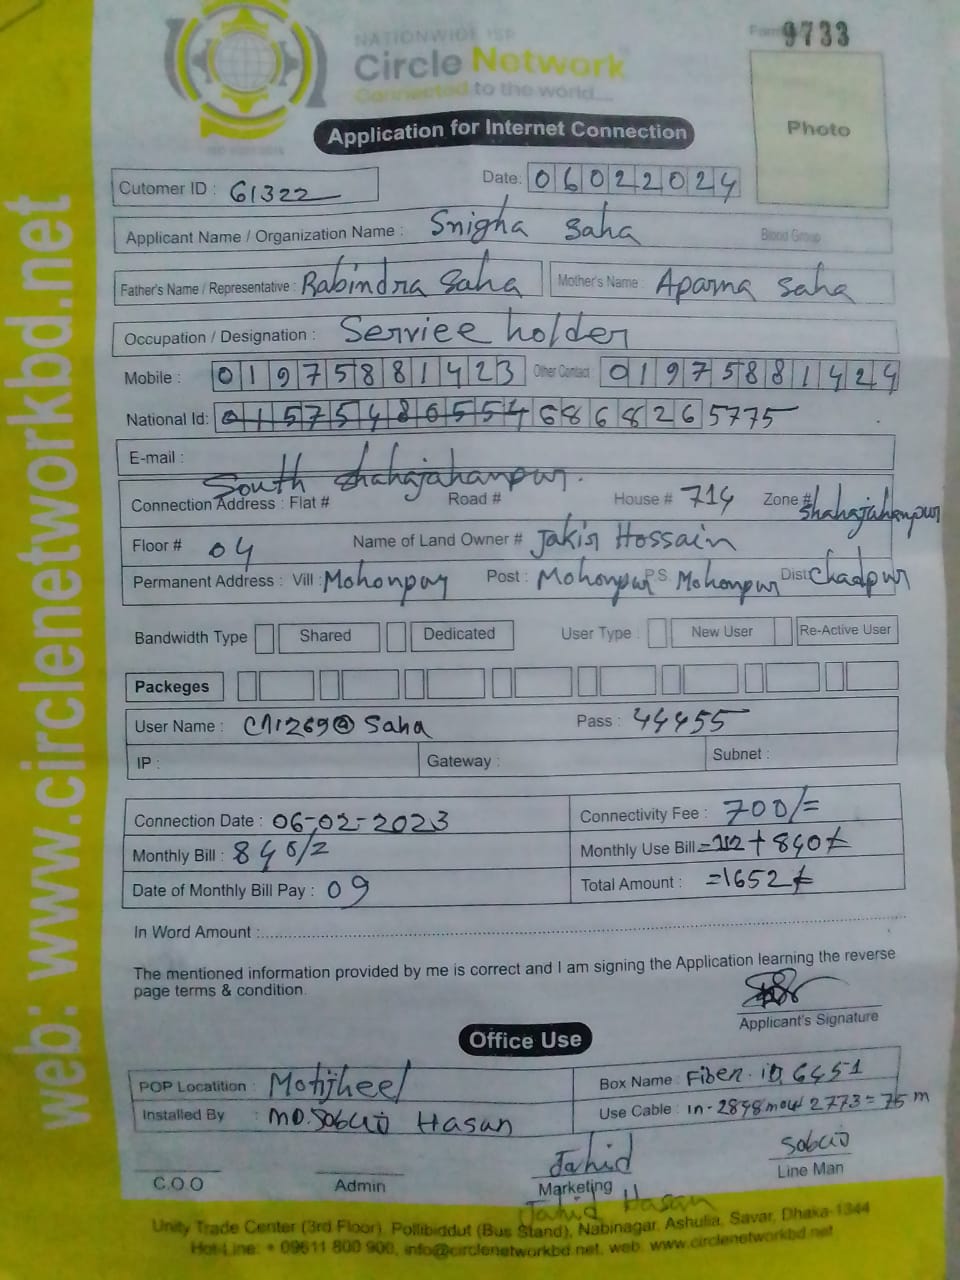 NATIONWIDE ISP
Form 9733
Circle Network
Connected to the world...
Photo
Application for Internet Connection
Cutomer ID : 61322
Date: 06022024
Applicant Name / Organization Name : Snigha Saha Blood Group
Father's Name / Representative : Rabindra Saha Mother's Name : Aparna Saha
Occupation / Designation : Serviee holder
Mobile : 01975881423 Other Contact 01975881424
National Id: 01575486554 6868265775
E-mail :
South Shahajahanpur.
Connection Address : Flat # Road # House # 714 Zone # Shahajahanpur
Floor # 04 Name of Land Owner # Jakir Hossain
Permanent Address : Vill : Mohonpur Post : Mohonpur P.S. Mohonpur Dist: Chadpur
Bandwidth Type Shared Dedicated User Type : New User Re-Active User
Packeges
User Name : Pass : 44455
IP : Gateway : Subnet :
Connection Date : 06-02-2023 Connectivity Fee : 700/=
Monthly Bill : 840/= Monthly Use Bill =112 + 840/=
Date of Monthly Bill Pay : 09 Total Amount : =1652/=
In Word Amount :
The mentioned information provided by me is correct and I am signing the Application learning the reverse
page terms & condition.
Applicant's Signature
Office Use
POP Locatition : Motijheel Box Name : Fiber. ID 6451
Installed By : MD. Sobuj Hasan Use Cable : in-2848 2773 = 75 m
Jahid Sobuj
C.O.O Admin Marketing Line Man
Jahid Hasan
Unity Trade Center (3rd Floor), Pollibiddut (Bus Stand), Nabinagar, Ashulia, Savar, Dhaka-1344
Hot-Line: + 09611 800 900, info@circlenetworkbd.net, web: www.circlenetworkbd.net
web: www.circlenetworkbd.net